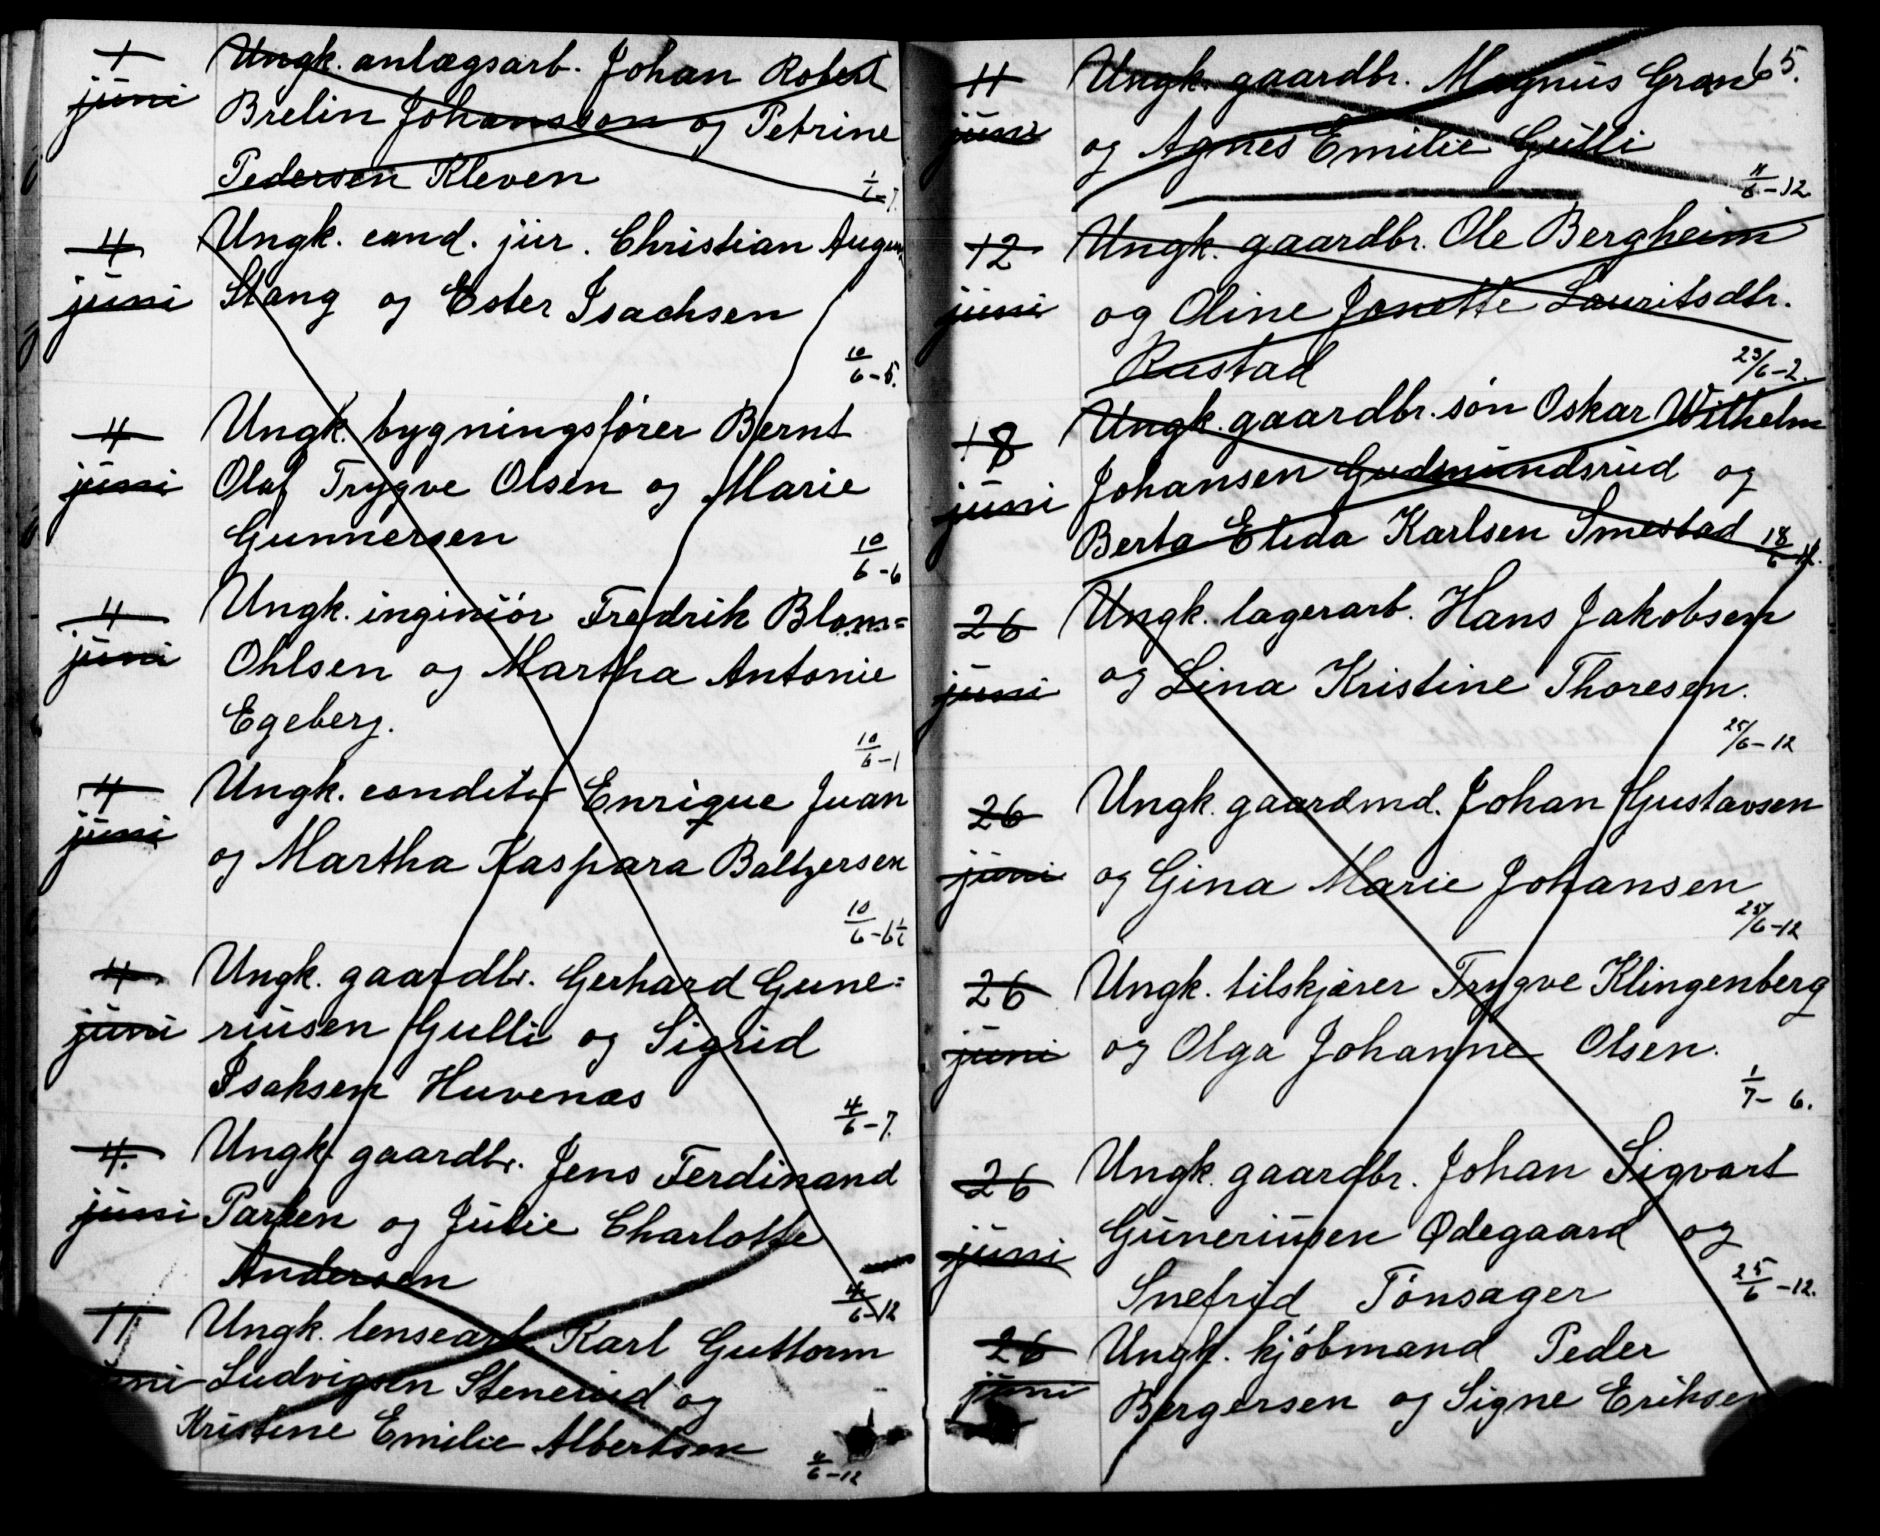 1 Ungk. anlægsarb. Johan Robert
juni Brelin Johansson og Petrine
Pedersen Kleven
1/6-7.
4 Ungk. cand. jur. Christian August
juni Stang og Ester Isachsen
10/6-5.
4 Ungk. bygningsfører Bernt
juni Olaf Trygve Olsen og Marie
Gunnersen
10/6-6
4 Ungk. inginiór Fredrik Blom=
juni Ohlsen og Martha Antonie
Egeberg.
10/6-1
4 Ungk. conditor Enrique Juan
juni og Martha Kaspara Baltzersen
10/6-6½
4 Ungk. gaardbr. Gerhard Gune=
juni riusen Gulli og Sigrid
Isaksen Huvenæs
4/6-7.
4. Ungk. gaardbr. Jens Ferdinand
juni Paulsen og Julie Charlotte
Andersen
4/6-12
11 Ungk. lensearb. Karl Guttorm
juni Ludvigsen Stenerud og
Kristine Emilie Albertsen
6-12
65.
11 Ungk. gaardbr. Magnus Gran
juni og Agnes Emilie Gulli
11/6-12
12 Ungk. gaardbr. Ole Bergheim
juni og Oline Jonette Lauritsdtr.
Rustad
23/6-2.
18 Ungk. gaardbr. søn Oskar Wilhelm
juni Johansen Gudmundsrud og
Berta Elida Karlsen Smestad
18/6
26 Ungk. lagerarb. Hans Jakobsen
juni og Lina Kristine Thoresen.
25/6-12
26 Ungk. gaardmd. Johan Gustavsen
juni og Gina Marie Johansen
25/6-12
26 Ungk. tilskjærer Trygve Klingenberg
juni og Olga Johanne Olsen.
1/7-6.
26 Ungk. gaardbr. Johan Sigvart
juni Guneriusen Ødegaard og
Snefrid Tónsager
25/6-12.
26 Ungk. kjóbmand Peder
juni Bergersen og Signe Eriksen